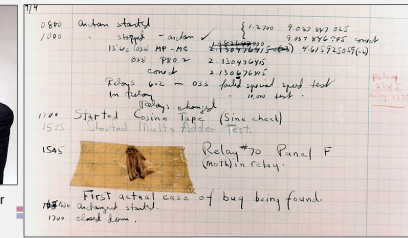 9/9
0800 Antan started
1000 " stopped - antan ✓ { 1.2700 9.037 847 025
9.037 846 995 correct
13"uc (032) MP-MC 4.615925059(-2)
(033) PRO 2 2.130476415
correct 2.130676415
Relays 6-2 in 033 failed special speed test
in relay " 10.00 test.
Relays changed
Relay
1700 Started Cosine Tape (Sine check)
1525 Started Multi Adder Test.
1545 Relay #70 Panel F
(moth) in relay.
First actual case of bug being found.
antangent started.
1700 closed down.
r